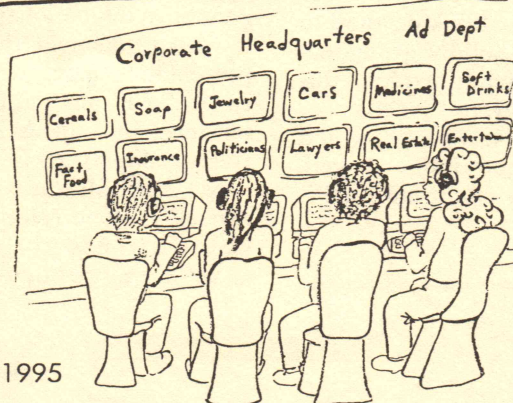 Corporate Headquarters Ad Dept
Cereals Soap Jewelry Cars Medicines Soft Drinks
Fast Food Insurance Politicians Lawyers Real Estate
1995